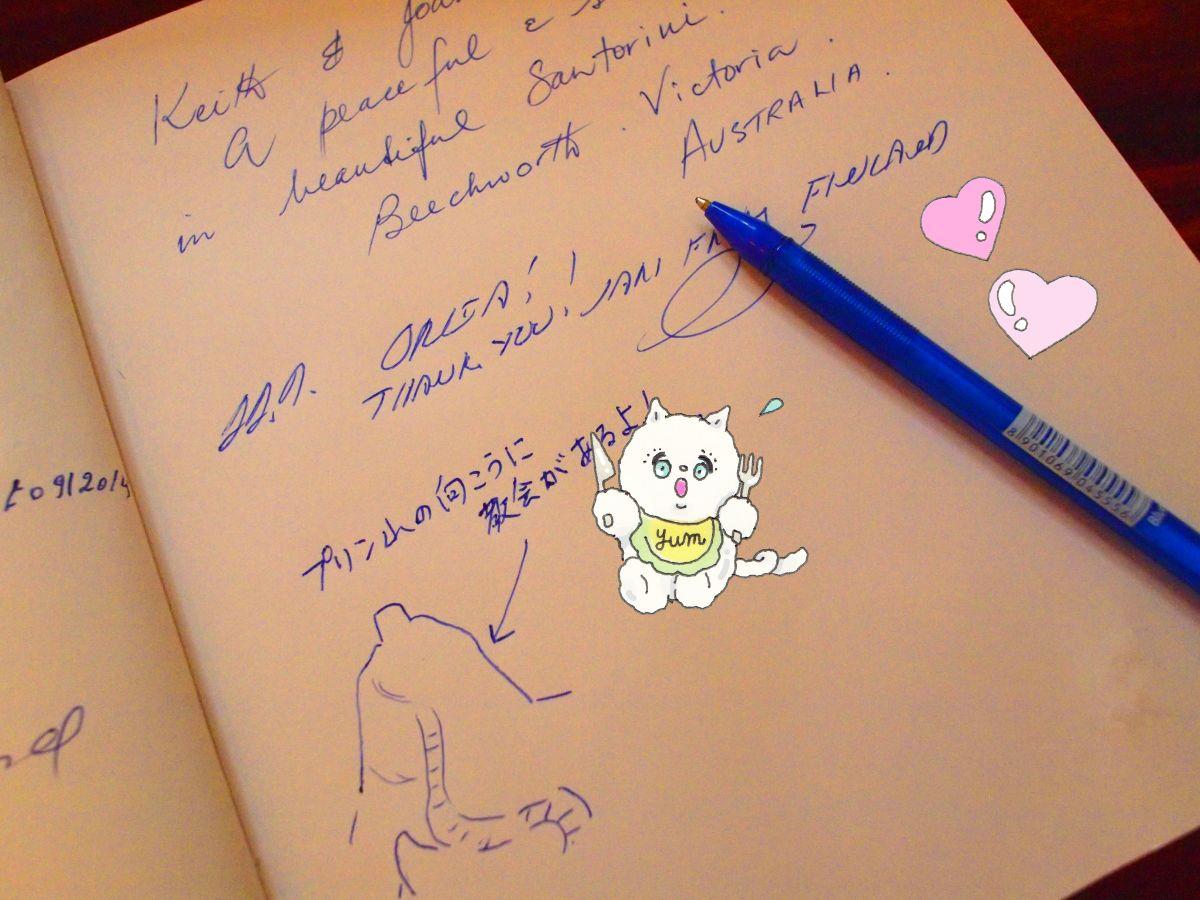 Keith &
A peaceful &
in beautiful Santorini.
Beechworth. Victoria.
AUSTRALIA.
THANK YOU, JANI FROM FINLAND
プリン山の向こうに
教会があるよ!
Yum
8901069045556